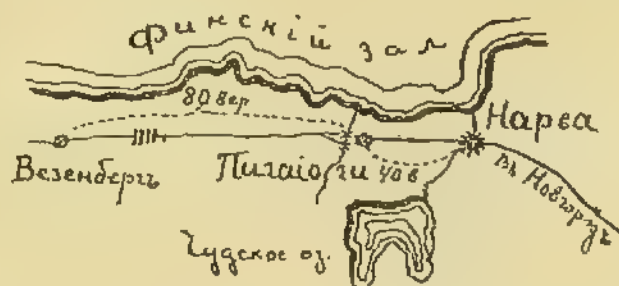 Финскій зал
80 вер
Нарва
Везенбергъ
Пигаіоги
40 в
въ Новгородъ
Чудское оз.